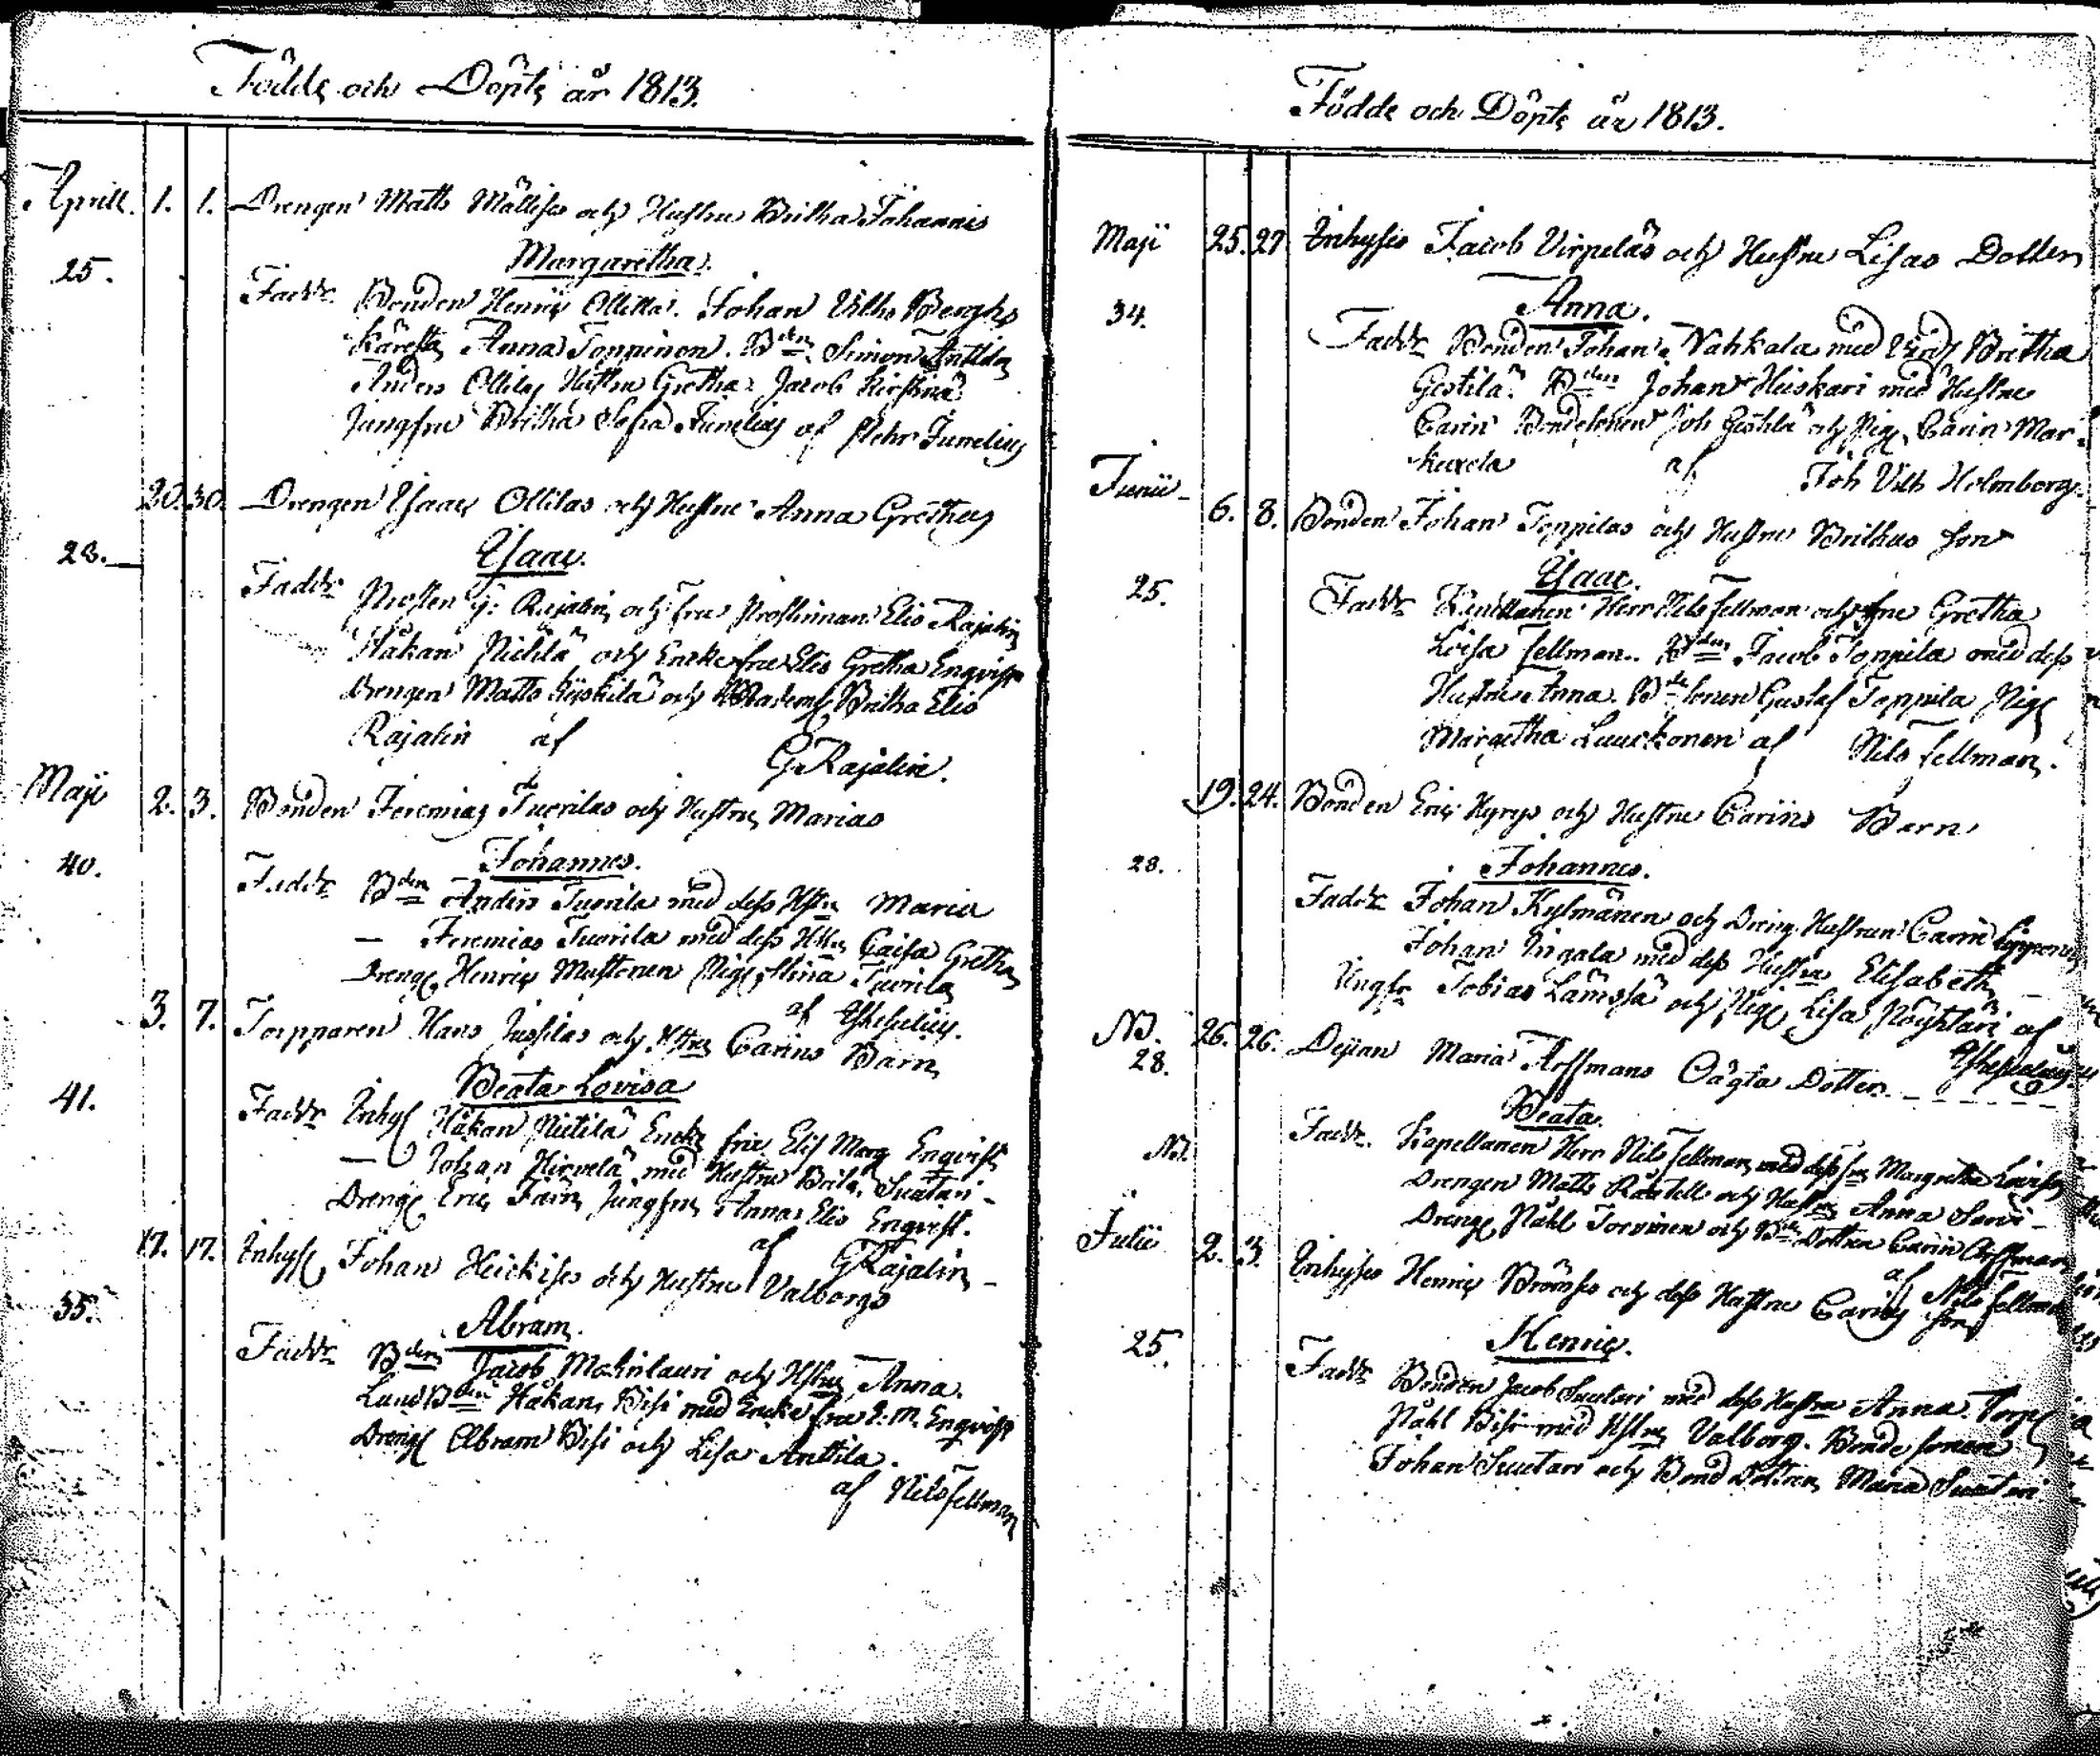 Födde och Döpte år 1813.
Aprill. 1. 1. Drengen Matts Mällises och Hustru Britha Johannis
Margaretha.
25.
Faddr. Bonden Henric Ollilla. Johan Vilh. Berghs
Käresta Anna Toppinen. Bden Simon Anttila
Anders Ollilas Hustru Gretha. Jacob
Jungfru Britha Sofia Junelius af Pehr Junelius
20. 30. Drengen Isaac Ollilas och Hustru Anna Grethas
Isaac.
28.
Faddr Prosten G: Rajalin och fru Prostinnan Elis Rajalin
Håkan Pietilä och Encke fru Elis Gretha Enqvist
Drengen Matts och Britha Elis
Rajalin af G Rajalin.
Maji 2. 3. Bonden Jeremias Tuorilas och Hustru Marias
Johannes.
40.
Faddr Bden Anders Tuorila med dess Hstru Maria
— Jeremias Tuorila med dess Hstru Caisa Gretha
Dreng. Henric Mattonen Pig. Stina Tuorila
af
3. 7. Torpparen Hans Jussilas och Hstru Carins Barn
Beata Lovisa
41.
Faddr Inhys Håkan Pietilä Encke fru Elis Marg Enqvist
— Johan Hirvelä med Hustru Brita Suutari -
Dreng. Eric Jungfru Anna Elis Enqvist.
af G Rajalin -
17. 17. Inhys Johan Heickises och Hustru Valborgs
Abram.
35.
Faddr Bden Jacob Matinlauri och Hstru Anna.
LandBden Håkan Bisi med Encke fru E. M. Enqvist
Dreng Abram Bisi och Lisa Anttila.
af Nils Fellman
Födde och Döpte år 1813.
Maji 25. 27. Inhyses Jacob Virpelas och Hustru Lisas Dotter
Anna.
34.
Faddr Bonden Johan Vahkala med Britha
Gestilä. Bden Johan Huiskari med Hustru
Carin Bondesonen Joh Gestilä och Pig. Carin Mar-
kuxela af Joh Vilh Holmberg.
Junii 6. 8. Bonden Johan Toppilas och Hustru Brithas Son
Isaac.
25.
Faddr Herr Nils Fellman och fru Gretha
Lovisa Fellman. Bden Jacob Toppila med dess
Hustru Anna. Bde sonen Gustaf Toppila Pig
Margetha Luuckonen af Nils Fellman.
19. 24. Bonden Eric Kyrys och Hustru Carins Barn
Johannes.
28.
Faddr Johan Kylmänen och Dreng Hustrun Carin
Johan Ingala med dess Hustru Elisabeth
Ungkr Tobias Lämsä och Pig. Lisa af
No. 28. 26. 26. Dejan Maria Arffmans Oägta Dotter
Beata.
No.
Faddr. Kapellanen Herr Nils Fellman med dess fru Margretha Lovisa
Drengen Matts och Hustru Anna
Dreng. Påhl Torvinen och Bde Dottren Carin Arffman
af Nils Fellman
Julii 2. 3. Inhyses Henric Brömses och dess Hustru Carins Son
Henric.
25.
Faddr Bonden Jacob Suutari med dess Hustru Anna. Torp.
Påhl Bisi med Hstru Valborg. Bonde sonen
Johan Suutari och Bond Dottren Maria Suutari